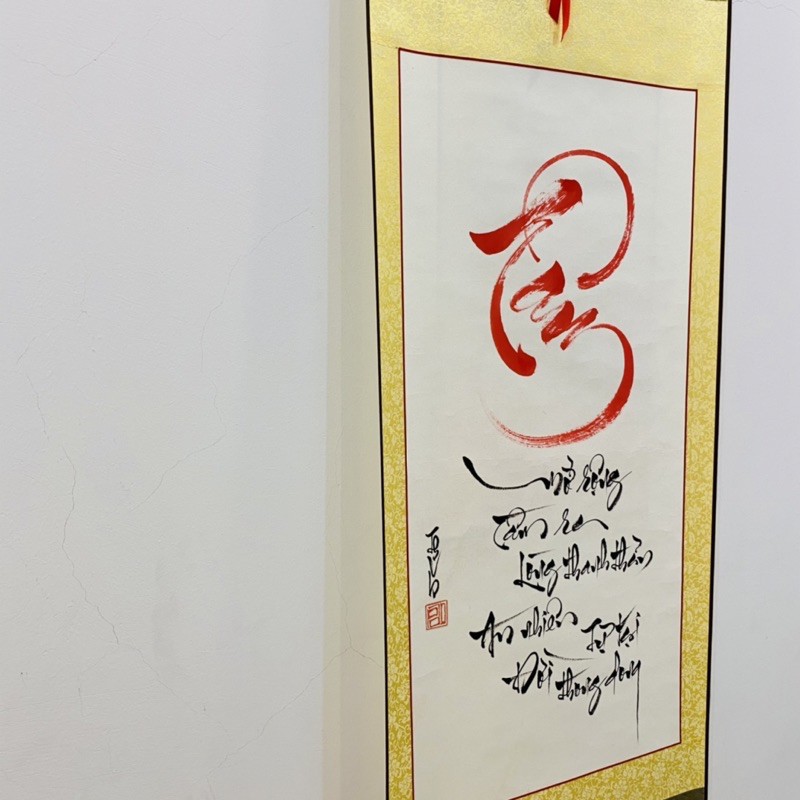 Tâm
Mở rộng
Tâm ra
Lòng thanh thản
An nhiên Tự tại
Đời thong dong